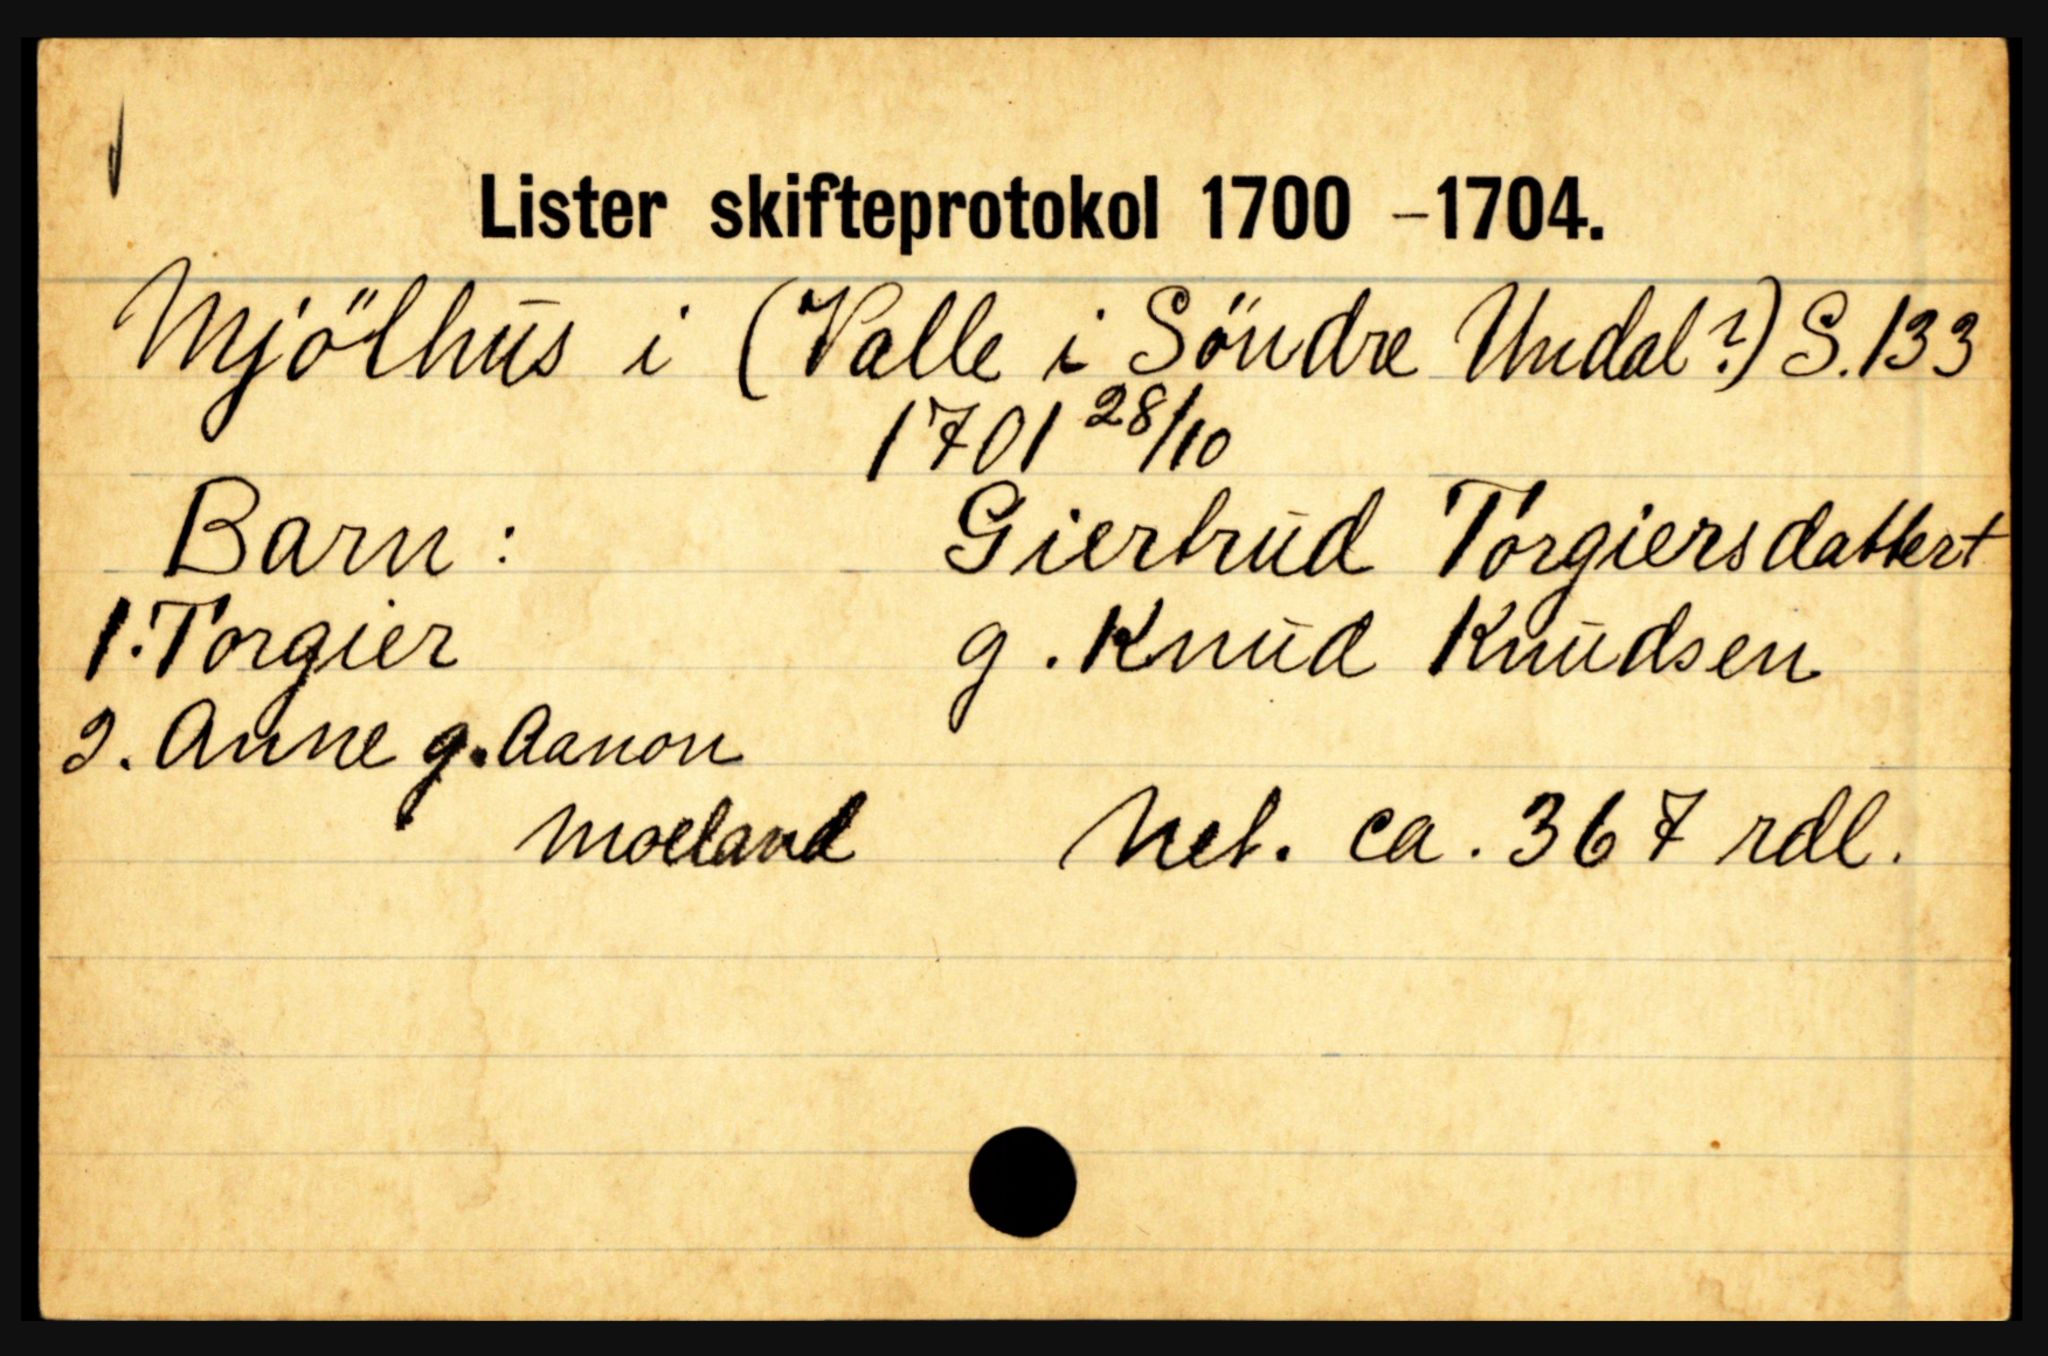 Lister skifteprotokol 1700 -1704.
Mjölhus i (Valle i Söndre Undal?) S. 133
1701 28/10
Barn: Giertrud Torgiersdatter †
1. Torgier g. Knud Knudsen
2. Anne g. Aanon
Moeland Net. ca. 367 rdl.